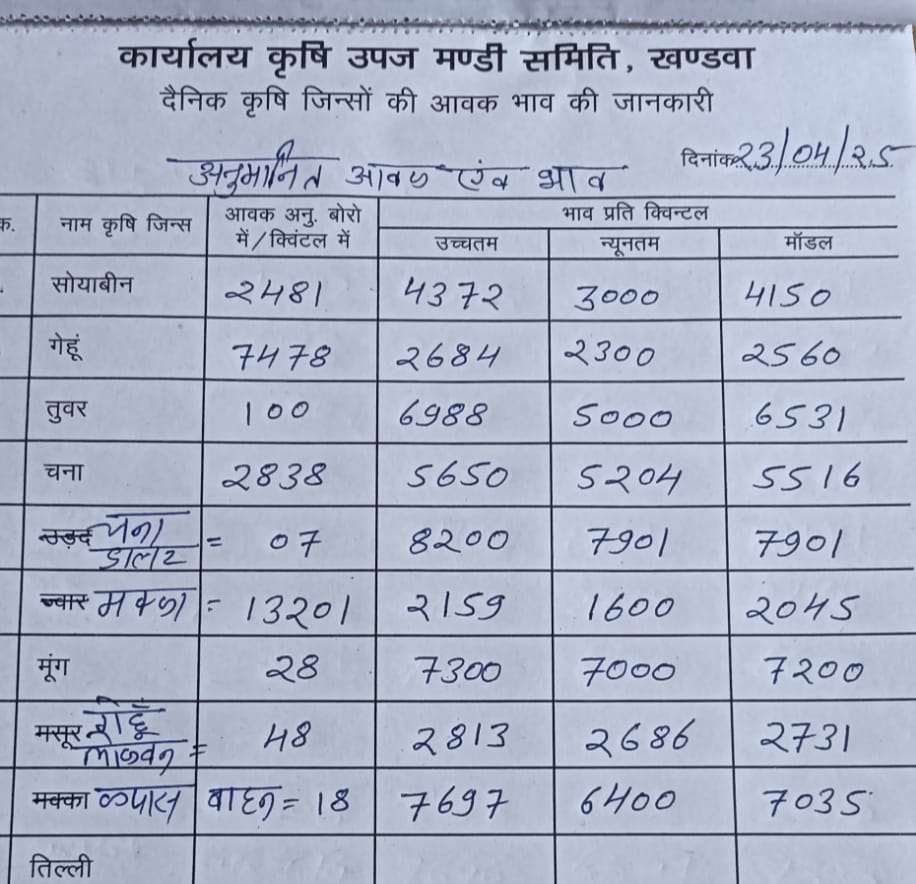 कार्यालय कृषि उपज मण्डी समिति, खण्डवा
दैनिक कृषि जिन्सों की आवक भाव की जानकारी
दिनांक 23/04/25
अनुमानित आवक एंव भाव
क. नाम कृषि जिन्स आवक अनु. बोरो में/क्विंटल में भाव प्रति क्विन्टल
उच्चतम न्यूनतम मॉडल
सोयाबीन 2481 4372 3000 4150
गेहूं 7478 2684 2300 2560
तुवर 100 6988 5000 6531
चना 2838 5650 5204 5516
उड़द चना डालर = 07 8200 7901 7901
ज्वार मक्का = 13201 2159 1600 2045
मूंग 28 7300 7000 7200
मसूर गेहूँ लोकवन = 48 2813 2686 2731
मक्का कपास वाहन = 18 7697 6400 7035
तिल्ली